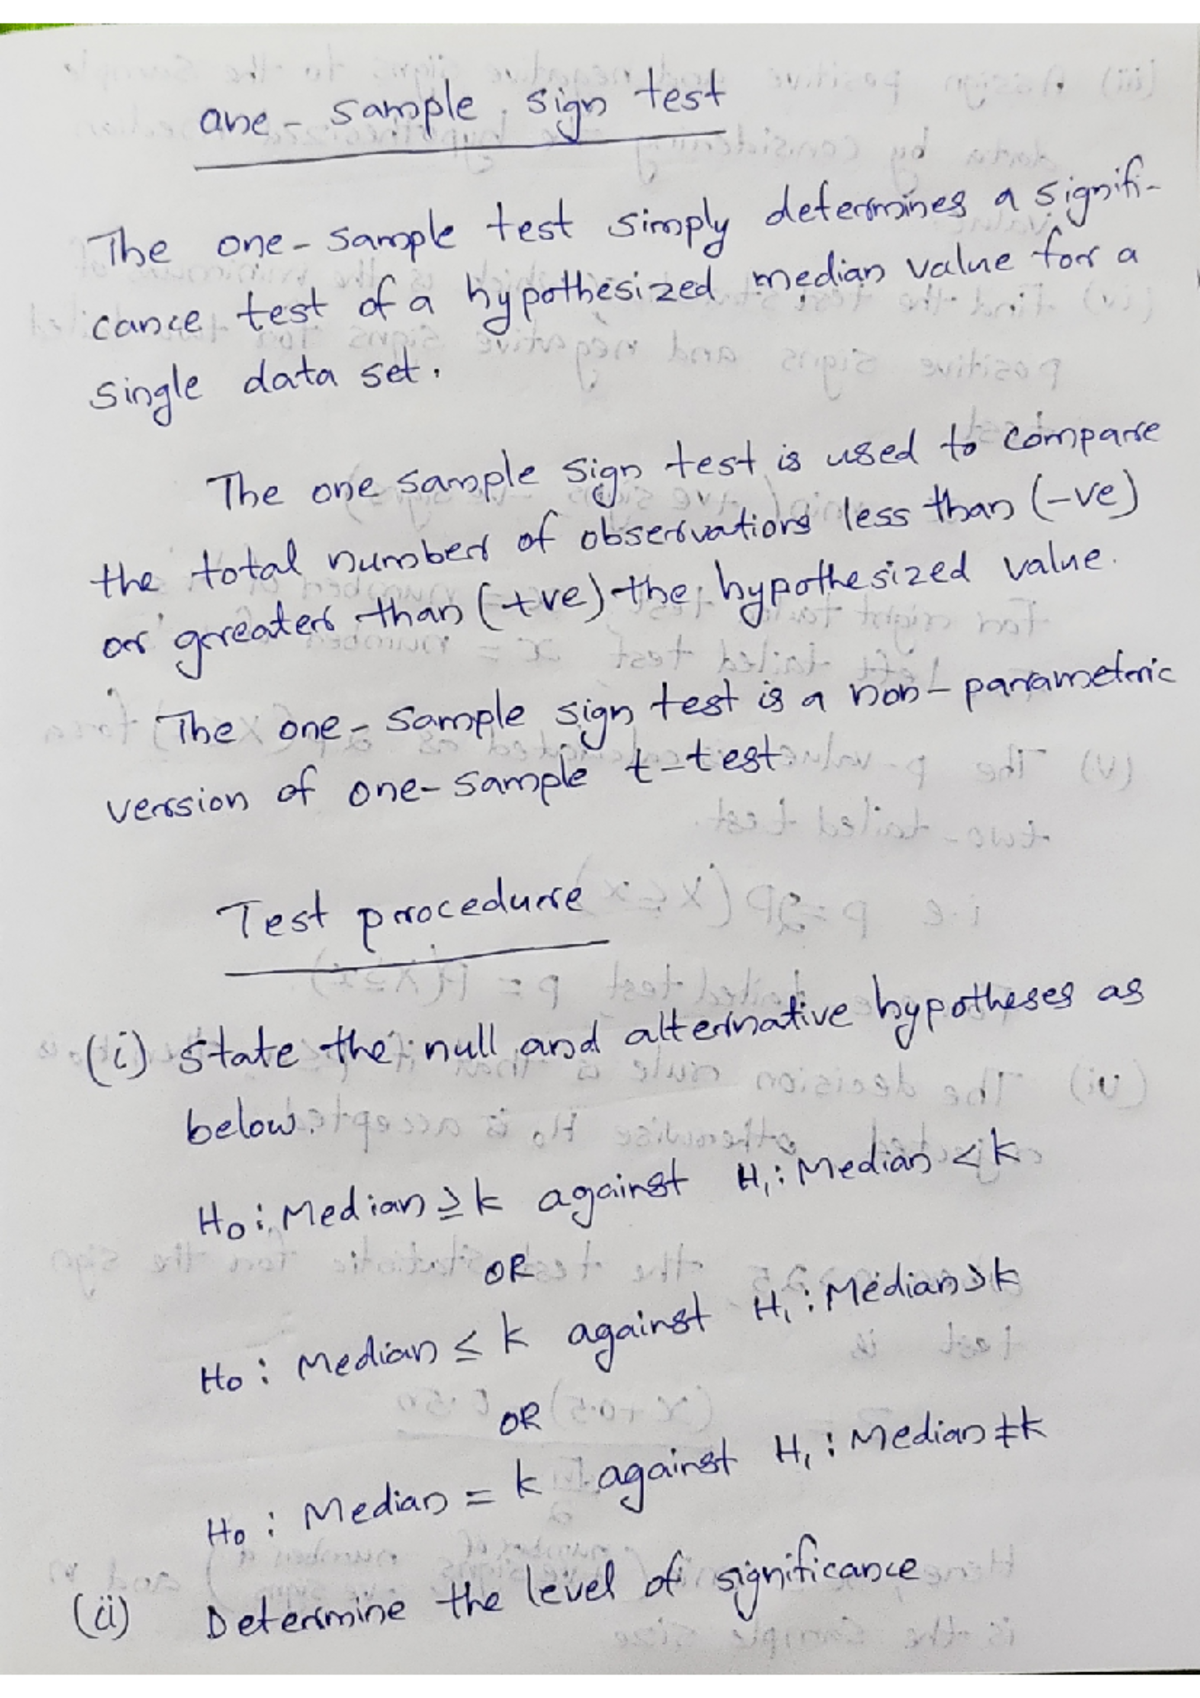 one-sample sign test
The one-sample test simply determines a signifi-
cance test of a hypothesized median value for a
single data set.
The one sample sign test is used to compare
the total number of observations less than (-ve)
or greater than (+ve) the hypothesized value.
The one-sample sign test is a non-parametric
version of one-sample t-test
Test procedure
(i) state the null and alternative hypotheses as
below.
H₀: Median ≥ k against H₁: Median < k
OR
H₀: Median ≤ k against H₁: Median > k
OR
H₀: Median = k against H₁: Median ≠ k
(ii) Determine the level of significance